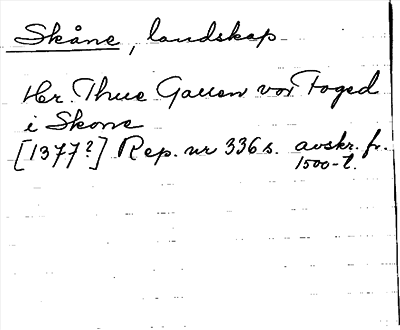 Skåne, landskap
Hr. Thue Galen vor Foged
i Skone
[1377?] Rep. nr 336 s. avskr. fr.
1500-t.